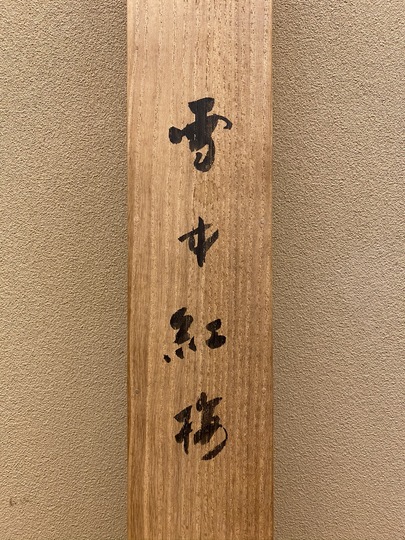 雪中紅梅